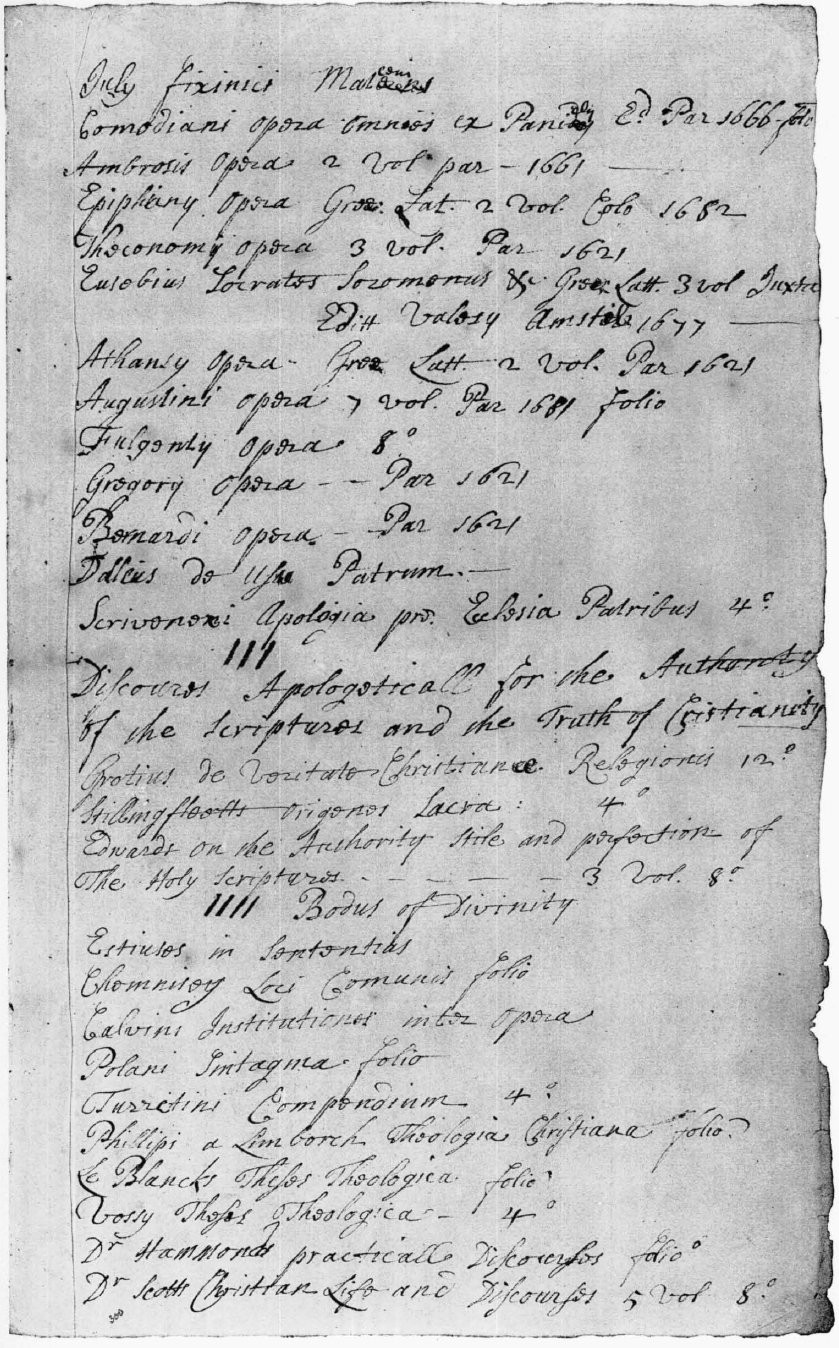 July firinici Materni
Comodiani opera omnes ex Ed Par 1666 folio
Ambrosis Opera 2 Vol par - 1661
Epiphany opera Grec. Lat. 2 Vol. Colo 1682
Theconomy opera 3 vol. Par 1621
Eusebius Socrates Sozomenus &c Grec Latt. 3 vol Juxta
Editt Valesy Amstel 1677
Athansy opera - Grec Latt. 2 vol. Par 1621
Augustins opera 7 vol. Par 1681 folio
Fulgenty opera 8.o
Gregory opera - - Par 1621
Bernardi opera - Par 1621
Dalleus de Usu Patrum. -
Scriveneri Apologia pro. Eclesia Patribus 4o
III
Discoures Apologeticall for the Authority
of the Scriptures and the Truth of Cristianity
Grotius de Veritate Christiance Relegionis 12o
Stillingfleetts origenes Sacra : 4o
Edwards on the Authority stile and perfection of
The Holy Scriptures - - - - - 3 Vol. 8o
IIII Bodus of Divinity
Estiuses in Sententias
Chemnisey Loci Comunis folio
Calvins Institutiones inter opera
Polani Sintagma folio
Turretini Compendium 4o
Phillipi a Limborch Theologia Christiana folio
Le Blancks Theses Theologica folio
Vossy Theses Theologica - 4o
Dr Hammonds practicall Discourses folio
Dr Scotts Christian Life and Discourses 5 vol 8o
300